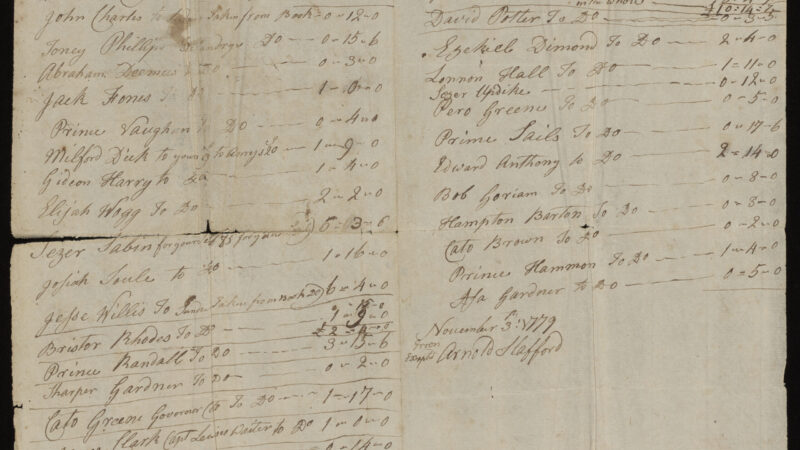 John Charles to Taken from Book = 0 = 12 = 0
Toney Phillips Do 0 = 15 = 6
Abraham Do 0 = 3 = 0
Jack Fones to Do 1 = 0 = 0
Prince Vaughan Do 0 = 4 = 0
Milford Dick to 1 = 9 = 0
Gideon Harry to Do 1 = 4 = 0
Elijah Wogg To Do 2 = 2 = 0
Sezer Sabin for yourself & for 6 = 3 = 6
Josiah Soule to Do 1 = 16 = 0
Jesse Willis To Taken from 6 = 4 = 0
Bristor Rhodes To Do
Prince Randall To Do 3 = 13 = 6
Sharper Gardner To Do 0 = 2 = 0
Cato Greene Governor To Do 1 = 17 = 0
Clark Capt Lewis to Do 1 = 0 = 0
0 = 14 = 0
in the whole
David Potter To Do 0 = 3 = 3
Ezekiel Dimond To Do 2 = 4 = 0
Lonnon Hall To Do 1 = 11 = 0
Sezer Updike 0 = 12 = 0
Pero Greene To Do 0 = 5 = 0
Prime Sails To Do 0 = 17 = 6
Edward Anthony to Do 2 = 14 = 0
Bob Goriam To Do 0 = 8 = 0
Hampton Barton To Do 0 = 3 = 0
Cato Brown To Do 0 = 2 = 0
Prince Hammon To Do 1 = 4 = 0
Asa Gardner to Do 0 = 5 = 0
November 3th: 1779
Green
Excepted Arnold Stafford